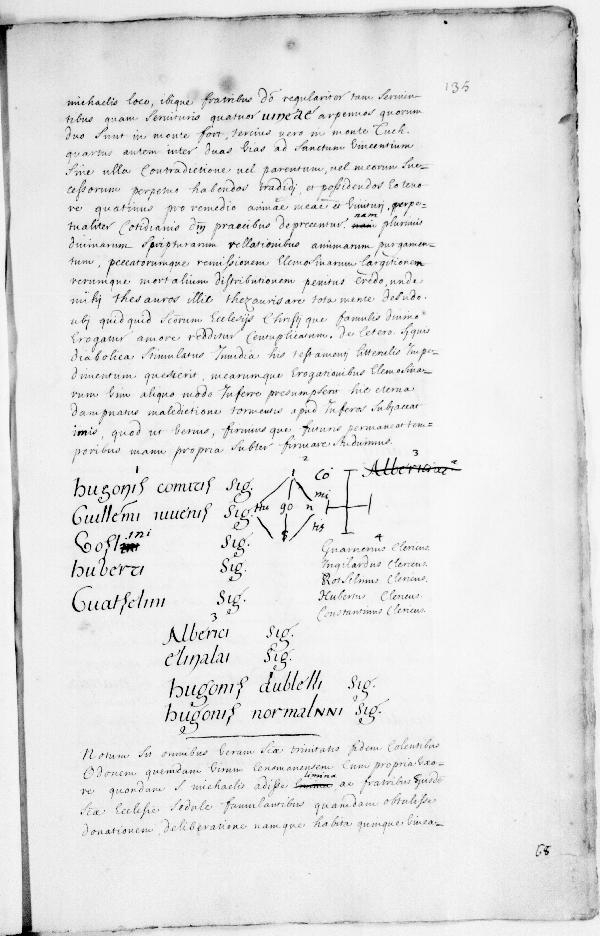 135
michaelis loco, ibique fratribus do regulariter tam servien-
tibus quam servituris quatuor vineae arpennos quorum
duo sunt in monte fort, tercius vero in monte Tuch.
quartus autem inter duas vias ad Sanctum Vincentium
Sine ulla Contradictione vel parentum, vel meorum Suc-
cessorum perpetuo habendos tradidj, et possidendos Eo teno-
re quatinus pro remedio animae meae et perpe-
tualiter Cotidianis dnj praecibus deprecentur. nam plurimis
divinarum Scripturarum rellationibus animarum purgamen-
tum, peccatorumque remissionem Elemosinarum largitionem
rerumque mortalium distributionem penitus Credo, unde
mihj thesauros illic thezaurisare tota mente desudo.
ubj quidquid Scorum Ecclesijs Christjque famulis divino
Erogatur amore redditur Centuplicatum. De Cetero. Sj quis
diabolica Stimulatus Invidia his testamentj litterulis Impe-
dimentum quesierit, mearumque Erogationibus Elemosina-
rum vim aliquo modo Inferre presumpserit hic eterna
dampnatus maledictione tormentis apud Inferos Subjaceat
imis, quod ut verius, firmius que futuris permaneat tem-
poribus manu propria Subter firmare Studuimus.
1
hugonis comitis Sig.
Guillemi iuvenis Sig.
Sig.
huberti Sig.
Guathelini Sig.
2
i Co
hu go n mi
S
ns
3
Alberici
4
Guarnerius Clericus.
Ingilardus Clericus.
Rotselinus Clericus.
Hubertus Clericus.
Constantinus Clericus.
3
Alberici Sig.
elinalai Sig.
hugonis dublelli Sig.
hugonis normalnni Sig.
Notum Sit omnibus veram Scae trinitatis fidem Colentibus
Odonem quemdam virum Cenomanensem Cum propria Uxo-
re quondam S michaelis adisse limina ac fratribus Ejusde
Scae Ecclesie Sedule famulantibus quamdam obtulisse
donationem, deliberatione namque habita quinque vinea-
68